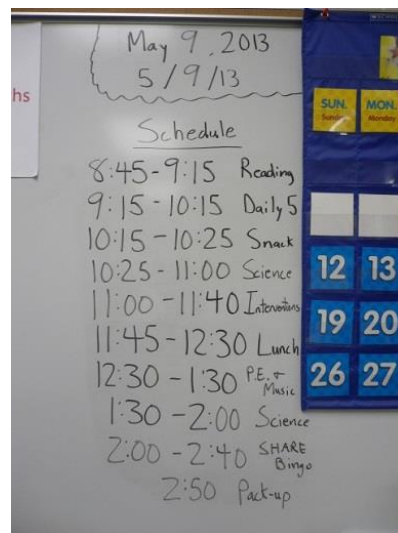 May 9, 2013
5/9/13
hs
Schedule
8:45-9:15 Reading
9:15-10:15 Daily 5
10:15-10:25 Snack
10:25-11:00 Science
11:00-11:40 Interventions
11:45-12:30 Lunch
12:30-1:30 P.E. & Music
1:30-2:00 Science
2:00-2:40 SHARE Bingo
2:50 Pack-up
SUN. MON.
Sunday Monday
12 13
19 20
26 27